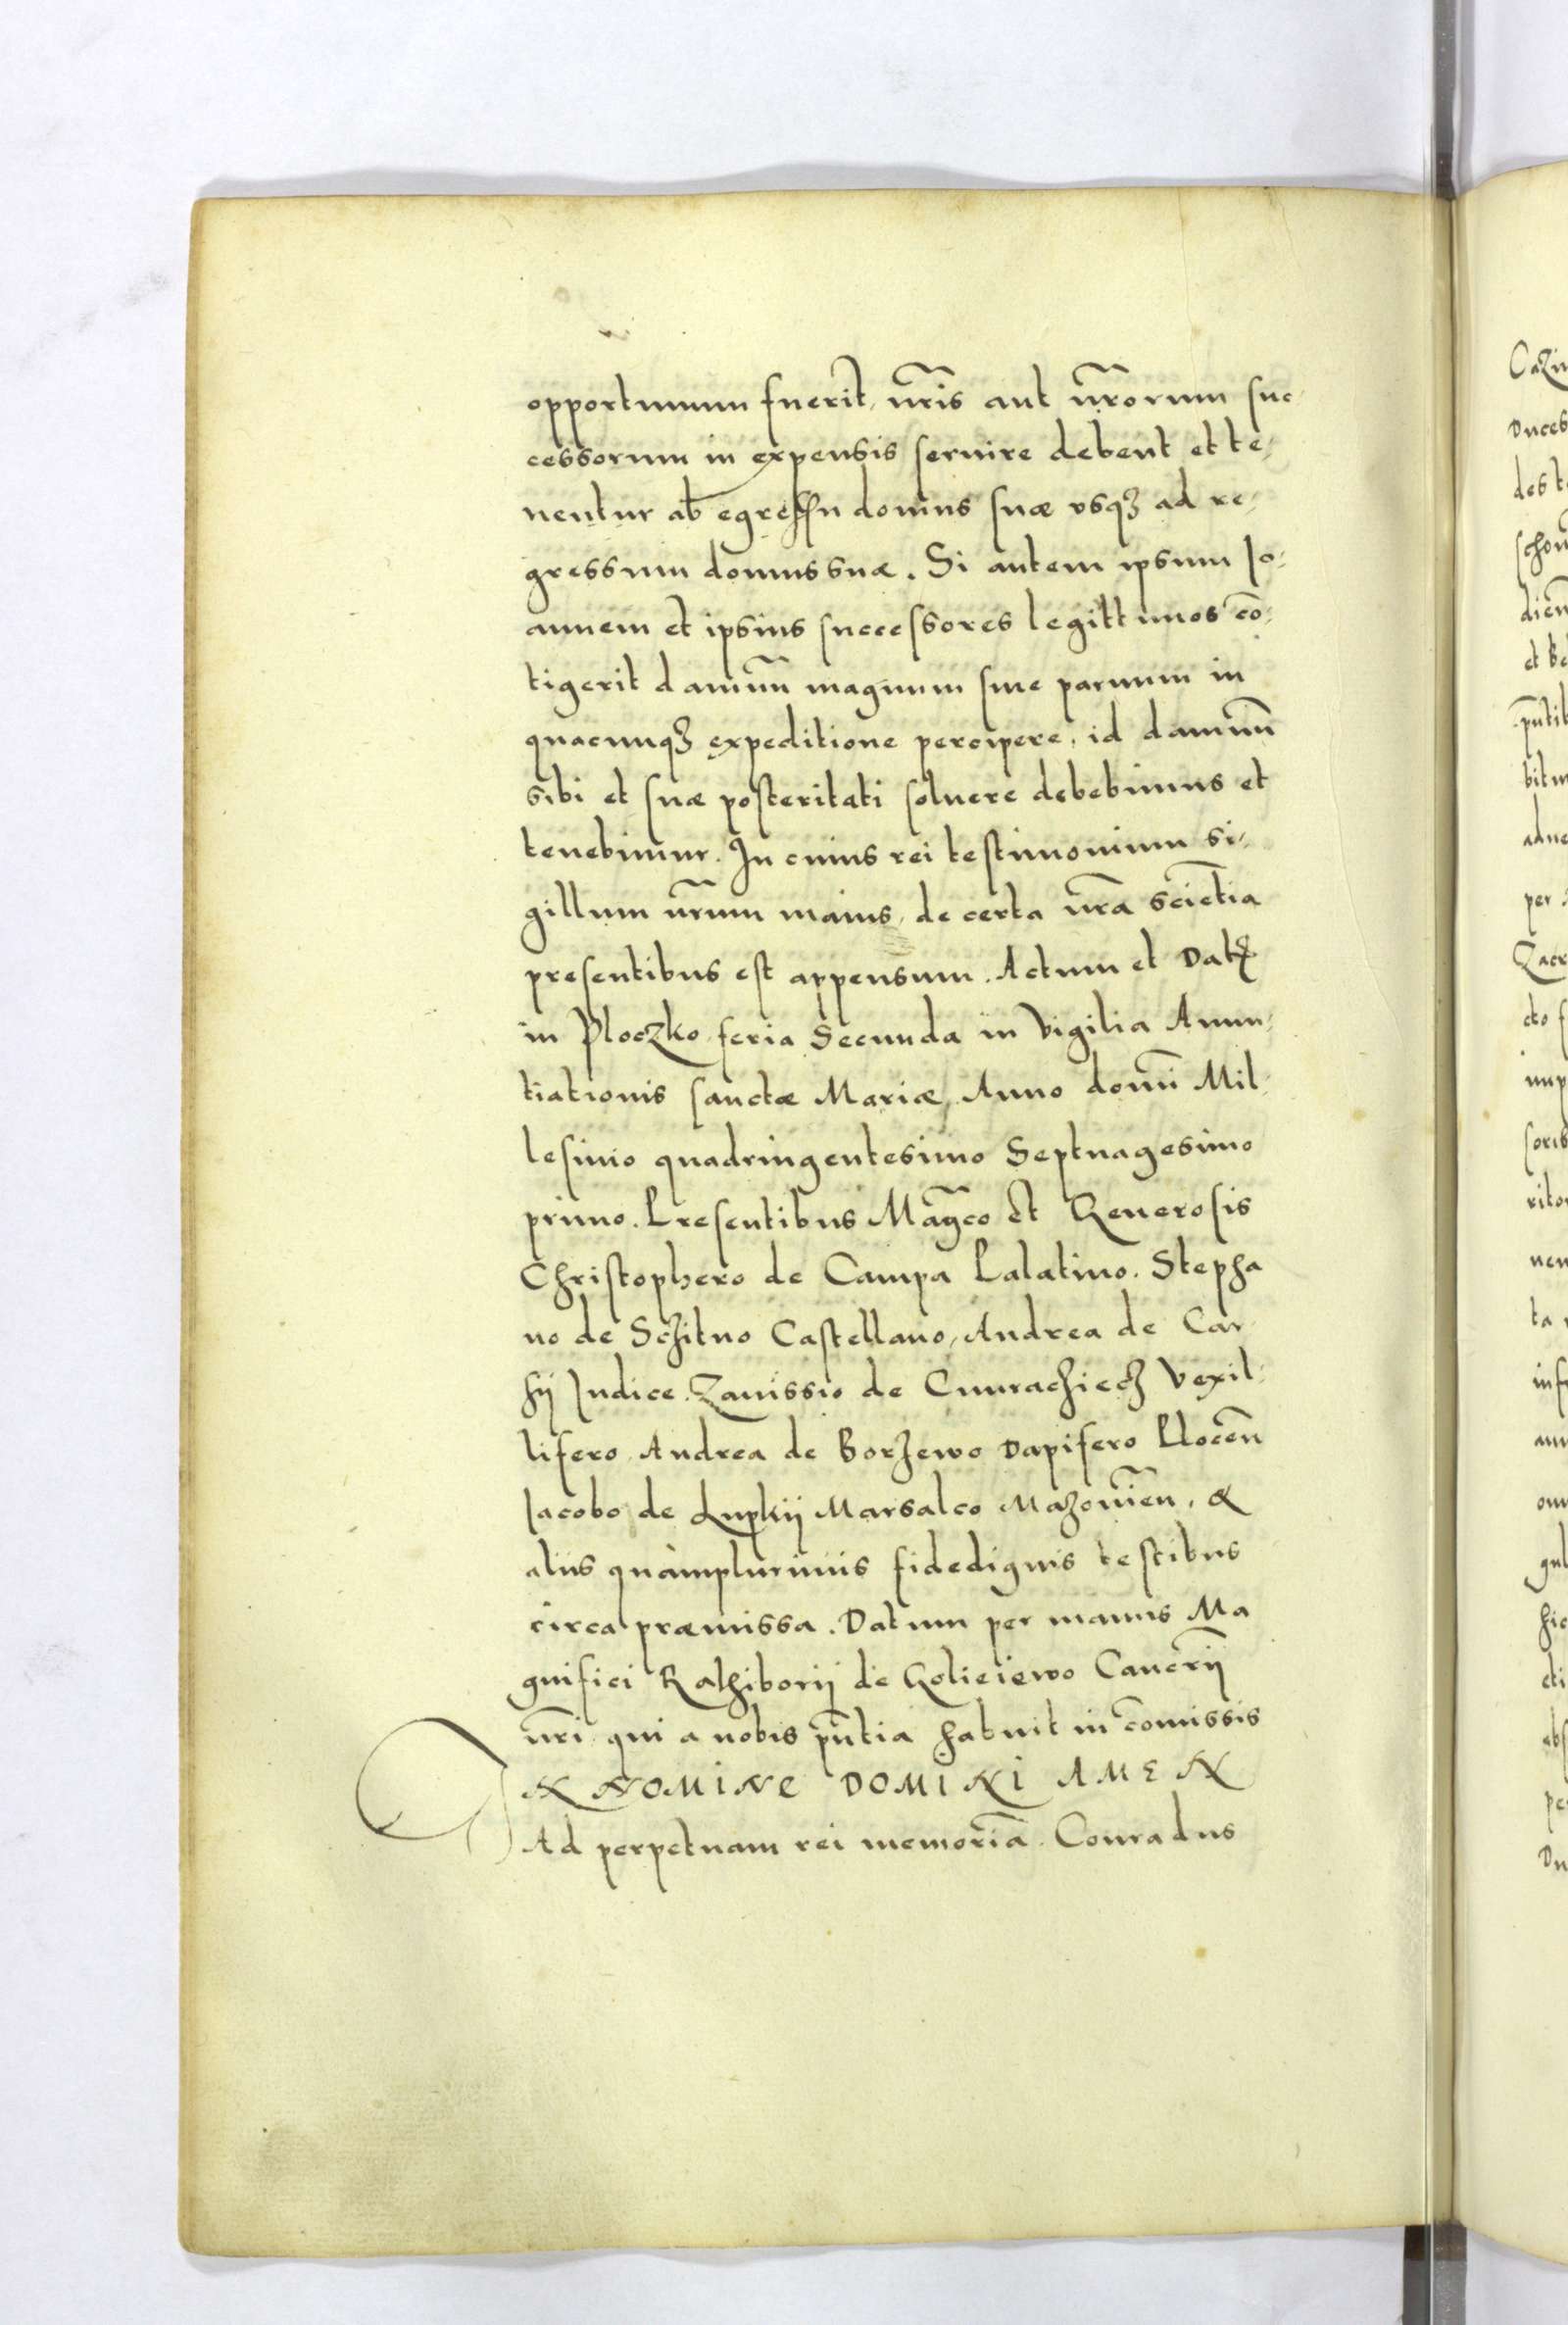 opportunum fuerit, nr̃is aut nr̃orum suc-
cessorum in expensis seruire debent et te-
nentur ab egressu domus suæ vsqꝫ ad re-
gressum domus suæ. Si autem ipsum Jo-
annem et ipsius successores legittimos cō-
tigerit damnū magnum siue paruum in
quacunqꝫ expeditione percipere, id damnū
sibi et suæ posteritati soluere debebimus et
tenebimur. In cuius rei testimonium si-
gillum nr̃um maius, de certa nr̃a sciētia
presentibus est appensum. Actum et Datꝫ
in Ploczko feria Secunda in Vigilia Anun-
tiationis sanctæ Mariæ, Anno domī Mil-
lesimo quadringentesimo Septuagesimo
primo. Presentibus Mag̃co et Generosis
Christophero de Campa Palatino. Stepha
no de Sczitno Castellano, Andrea de Car
Judice. Zauissio de Vexil-
lifero Andrea de Borzewo Dapifero Plocēn
Jacobo de Lupkij Marsalco Mazouiēn, &
aliis quàmplurimis fidedignis testibus
circa præmissa. Datum per manus Ma
gnifici Rathiborij de Golieiewo Cancr̃ij
nr̃i qui a nobis pn̄tia habuit in cōmissis
IN NOMINE DOMINI AMEN
Ad perpetuam rei memoriā. Conradus
Cazim
Duces